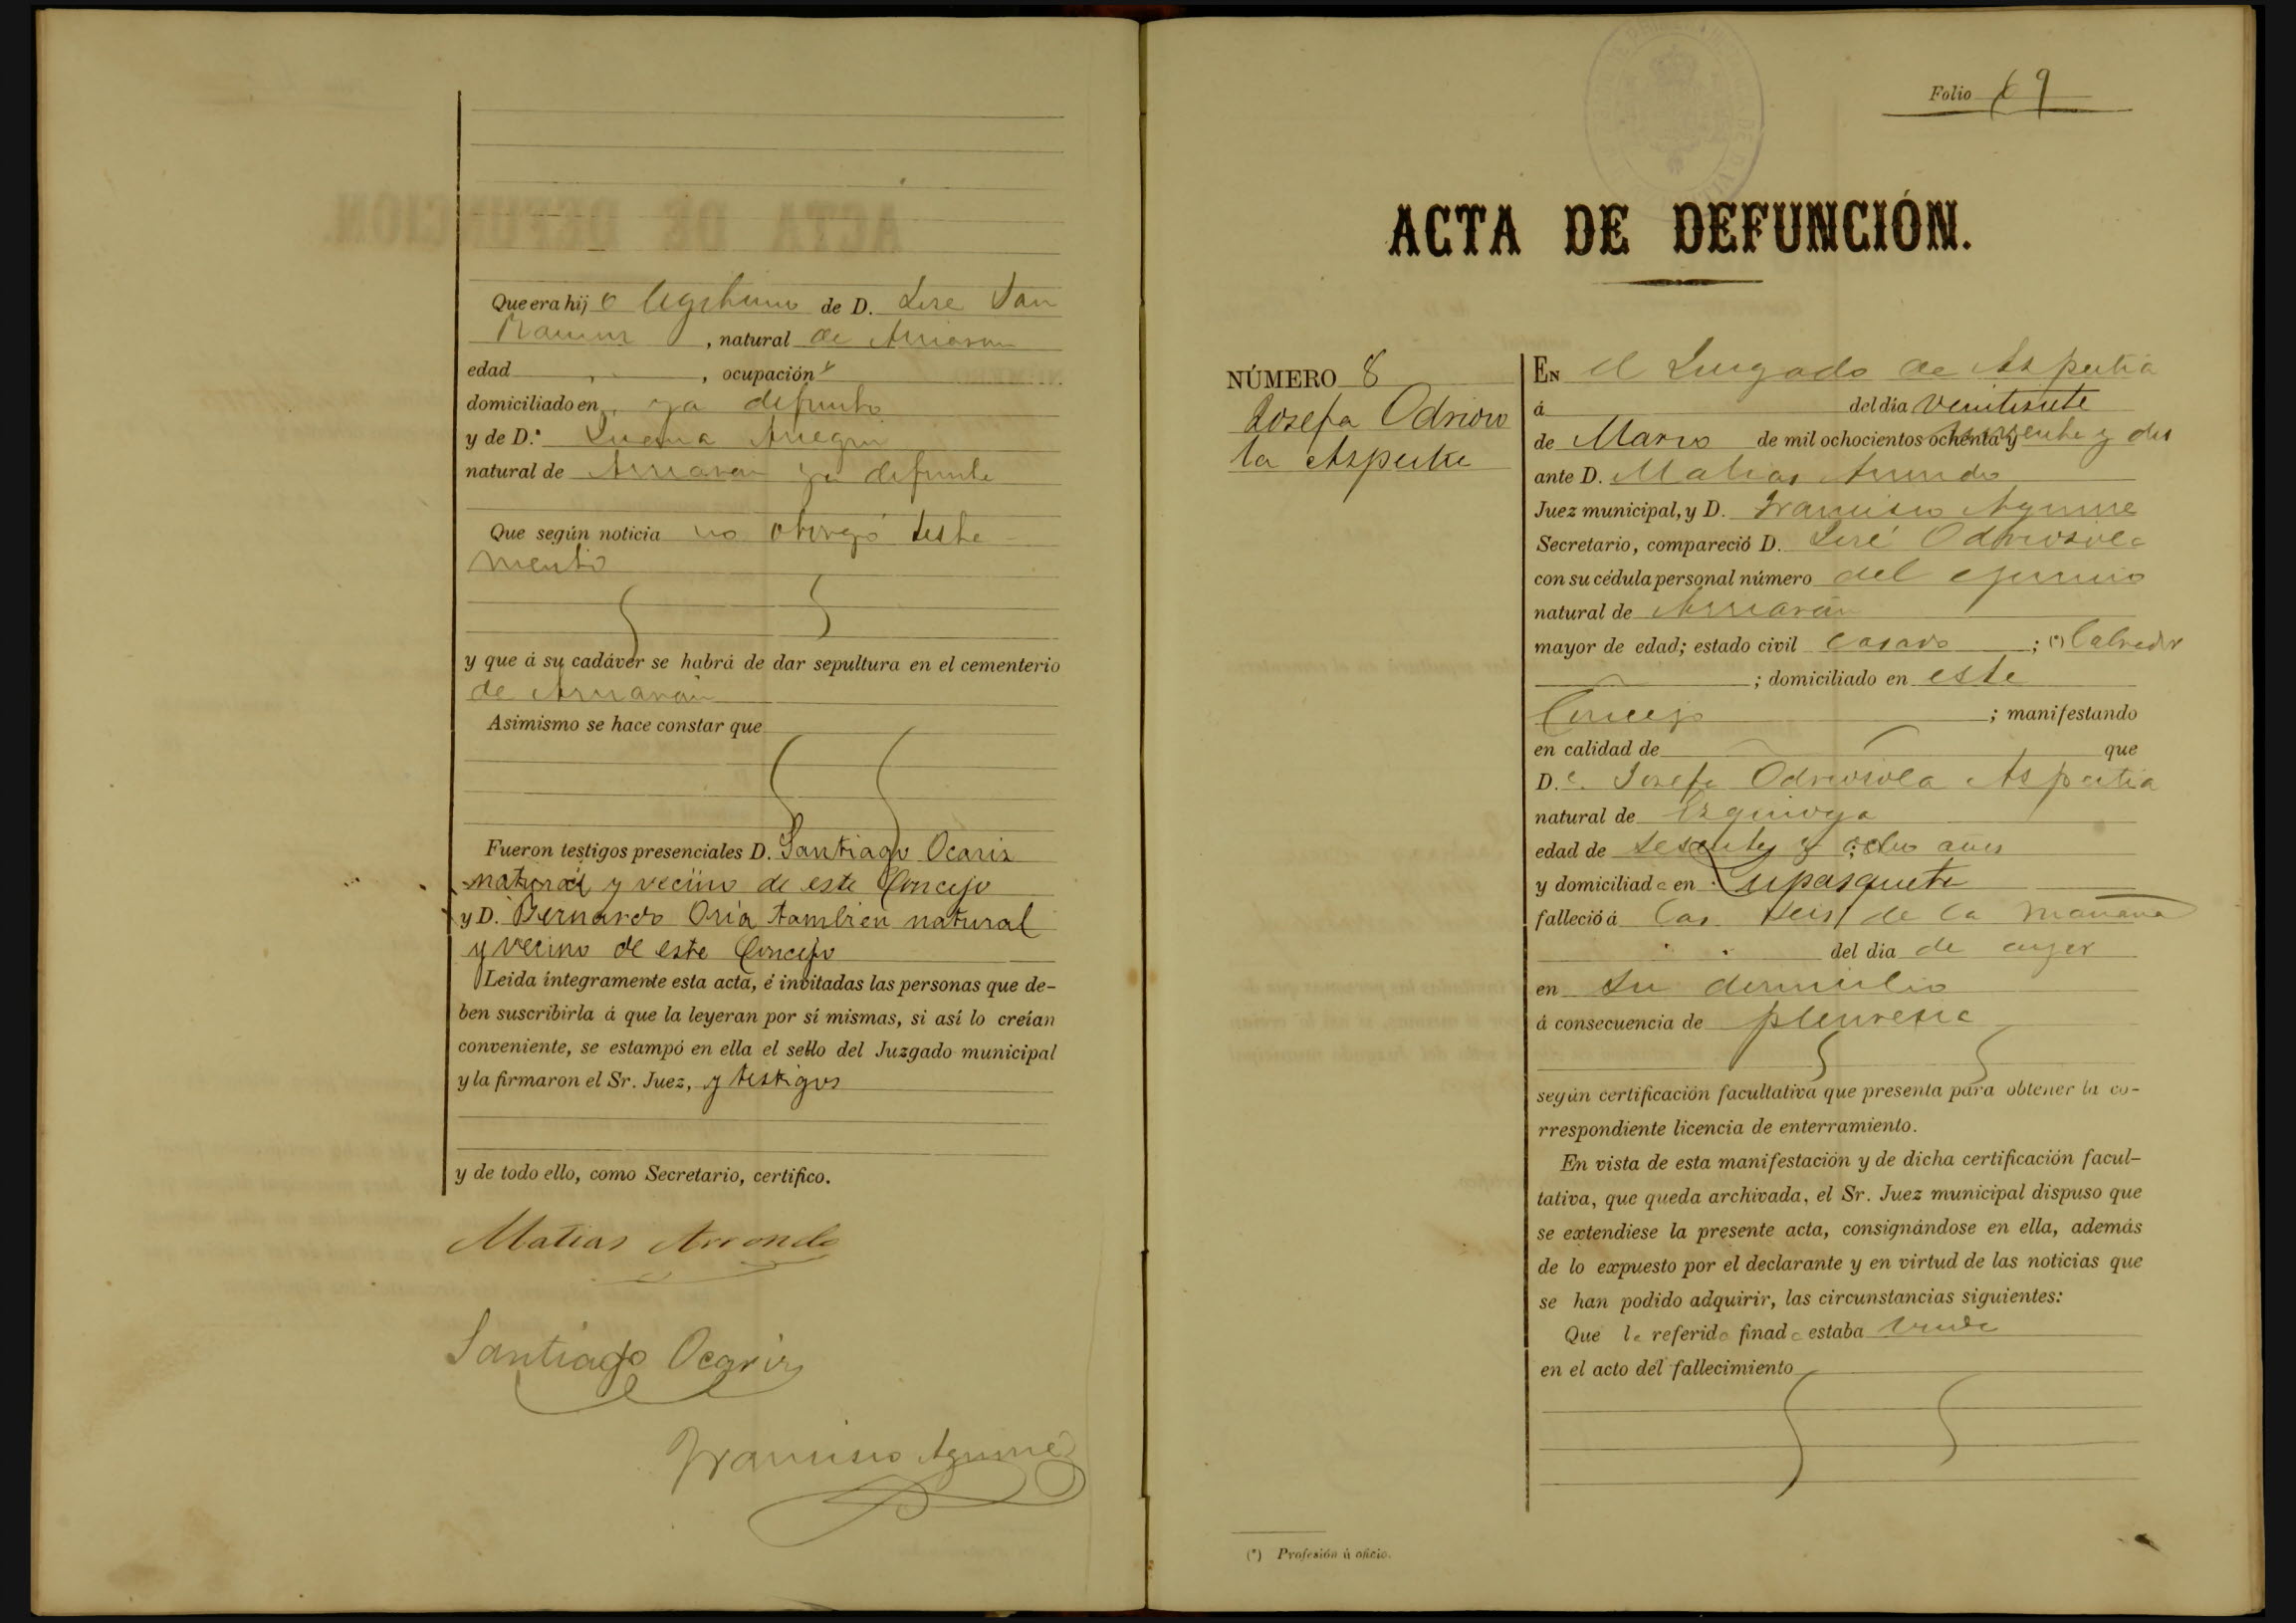 Que era hijo legitimo de D. Jose San
Ramon, natural de Arriaran
edad , ocupación
domiciliado en ya difunto
y de D.ª Arregui
natural de Arriaran ya difunta
Que según noticia no otorgó testa-
mento
y que á su cadáver se habrá de dar sepultura en el cementerio
de Arriaran
Asimismo se hace constar que
Fueron testigos presenciales D. Santiago Ocariz
natural y vecino de este Concejo
y D. Bernardo Oria tambien natural
y vecino de este Concejo
Leida íntegramente esta acta, é invitadas las personas que de-
ben suscribirla á que la leyeran por sí mismas, si así lo creían
conveniente, se estampó en ella el sello del Juzgado municipal
y la firmaron el Sr. Juez, y testigos
y de todo ello, como Secretario, certifico.
Matias Arrondo
Santiago Ocariz
Francisco Aguirre
Folio 69
ACTA DE DEFUNCIÓN.
NÚMERO 8
Josefa Odrioso
la Aspeitia
EN el Juzgado de Aspeitia
á del día veintisiete
de Marzo de mil ochocientos ochenta y noventa y dos
ante D. Matias Arrondo
Juez municipal, y D. Francisco Aguirre
Secretario, compareció D. José Odriosola
con su cédula personal número del ejercicio
natural de Arriaran
mayor de edad; estado civil casado ; (*) labrador
; domiciliado en este
Concejo ; manifestando
en calidad de que
D.ª Josefa Odriosola Aspeitia
natural de Ezquioga
edad de sesenta y ocho años
y domiciliada en Lupasqueta
falleció á las seis de la mañana
del dia de ayer
en su domicilio
á consecuencia de pleuresia
según certificación facultativa que presenta para obtener la co-
rrespondiente licencia de enterramiento.
En vista de esta manifestación y de dicha certificación facul-
tativa, que queda archivada, el Sr. Juez municipal dispuso que
se extendiese la presente acta, consignándose en ella, además
de lo expuesto por el declarante y en virtud de las noticias que
se han podido adquirir, las circunstancias siguientes:
Que la referida finada estaba viuda
en el acto del fallecimiento
(*) Profesión ú oficio.